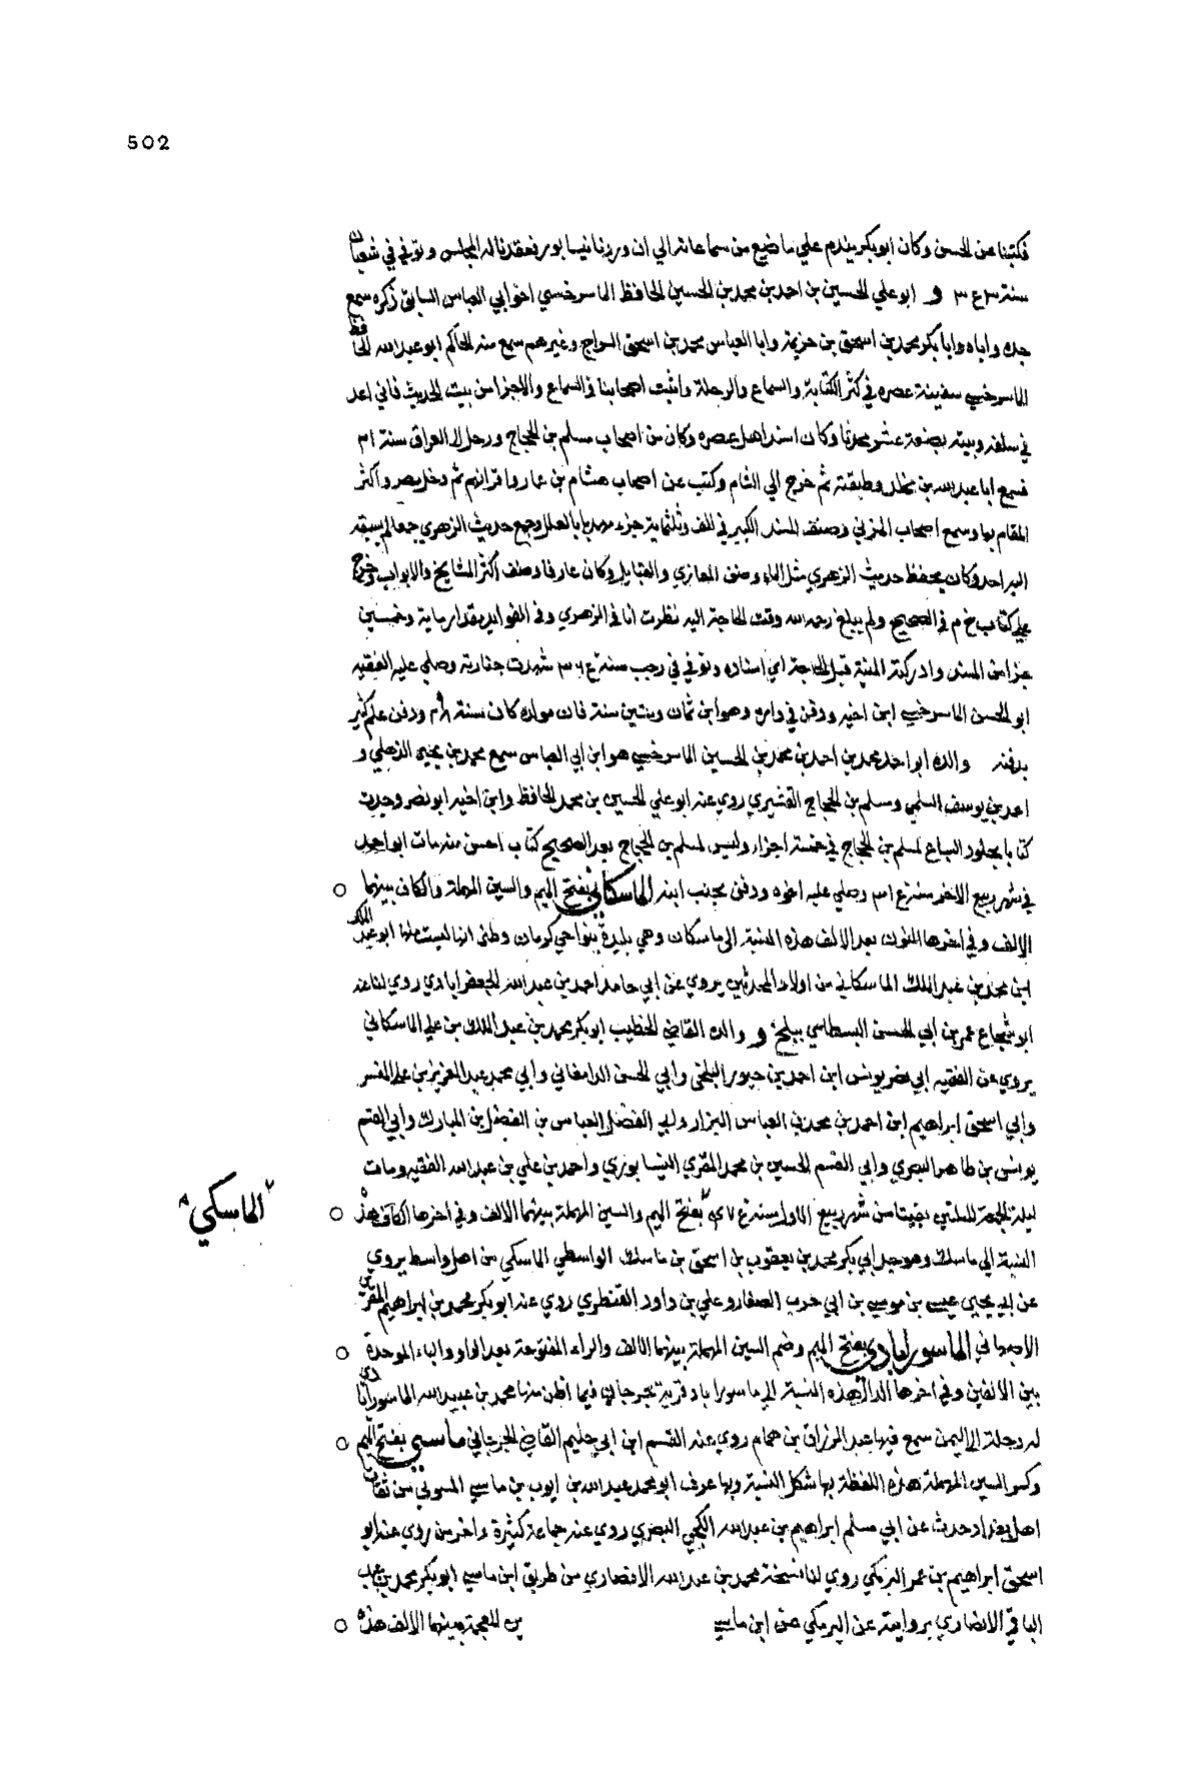 502
فكتبنا عن الحسن وكان ابو بكر يندم علي ما ضيع من سماعاته الي ان ورد نيسابور فعقدنا له المجلس وتوفي في شعبان
سنة ٣٤٣ و ابو علي الحسين بن احمد بن محمد بن الحسين الحافظ الماسرخسي اخو ابي العباس السابق ذكره سمع
جده واباه وابا بكر محمد بن اسحق بن خزيمة وابا العباس محمد بن اسحق السراج وغيرهم سمع منه الحاكم ابو عبد الله الحافظ
الماسرخسي سفينة عصره في كثرة الكتابة والسماع والرحلة واثبت اصحابنا في السماع والاجزا من بيت الحديث فاني اعد
في سلفه وبيته بضعة عشر محدثا وكان اسند اهل عصره وكان من اصحاب مسلم بن الحجاج ورحل الا العراق سنة ٣١
فسمع ابا عبد الله بن مخلد وطبقته ثم خرج الي الشام وكتب عن اصحاب هشام بن عمار واقرانهم ثم دخل مصر واكثر
المقام بها وسمع اصحاب المزني وصنف المسند الكبير في الف وثلثماية جزء مهذبا بالعلل وجمع حديث الزهري جمعا لم يسبقه
اليه احد وكان يحفظ حديث الزهري مثل الماء وصنف المغازي والقبايل وكان عارفا وصنف اكثر المشايخ والابواب وخرج
علي كتاب خ م في الصحيح ولم يبلغ رحمه الله وقت الحاجة اليه نظرت انا في الزهري وفي الفوايد بمقدار ماية وخمسين
جزا من المسند وادركته المنية قبل الحاجة اي اسناده وتوفي في رجب سنة ٣٦٤ شهدت جنازته وصلي عليه الفقيه
ابو الحسن الماسرخسي ابن اخيه ودفن في داره وهو ابن ثمان وستين سنة فان مولده كان سنة ٢٩٨ ودفن علم كثير
بدفنه والده ابو احمد محمد بن احمد بن محمد بن الحسين الماسرخسي هو ابن ابي العباس سمع محمد بن يحيي الذهلي و
احمد بن يوسف السلمي ومسلم بن الحجاج القشيري روي عنه ابو علي الحسين بن محمد الحافظ وابن اخيه ابو نصر وحدث
كتابا بجلود السباع لمسلم بن الحجاج في خمسة اجزاء وليس لمسلم بن الحجاج بعد الصحيح كتاب احسن منه مات ابو احمد
في شهر ربيع الاخر سنة ٣١٤ وصلي عليه اخوه ودفن بجنب ابنه الماسكاني بفتح الميم والسين المهملة والكاف بينهما ○
الالف وفي اخرها النون بعد الالف هذه النسبة الي ماسكان وهي بليدة بنواحي كرمان وظني انها ليست منها ابو عبد الملك
ابن محمد بن عبد الملك الماسكاني من اولاد المحدثين يروي عن ابي حامد احمد بن عبد الله الجعفرابادي روي لنا عنه
ابو شجاع عمر بن ابي الحسن البسطامي ببلخ و والده القاضي الخطيب ابو بكر محمد بن عبد الملك بن علي الماسكاني
يروي عن الفقيه ابي نصر يونس ابن احمد بن حيور البلخي وابي الحسن الدامغاني وابي محمد عبد العزيز بن علي المفسر
وابي اسحق ابراهيم ابن احمد بن محمد بن العباس البزار وابي الفضل العباس بن الفضل بن المبارك وابي القسم
يونس بن طاهر البصري وابي القسم الحسين بن محمد المقري النيسابوري واحمد بن علي بن عبد الله الفقيه ومات
ليلة الجمعة لليلتين بقيتا من شهر ربيع الاول سنة ٤٧٤ بفتح الميم والسين المهملة بينهما الالف وفي اخرها الكاف هذه ○
"الماسكي"
النسبة الي ماسك وهو جد ابي بكر محمد بن يعقوب بن اسحق بن ماسك الواسطي الماسكي من اهل واسط يروي
عن ابي يحيي عيسي بن موسي بن ابي حرب الصفار وعلي بن داود القنطري روي عنه ابو بكر محمد بن ابراهيم المقري
الاصبهاني الماسورابادي بفتح الميم وضم السين المهملة بينهما الالف والراء المفتوحة بعد الواو والباء الموحدة ○
بين الالفين وفي اخرها الدال هذه النسبة الي ماسوراباد قرية بجرجان فيما اظن منها محمد بن عبيد الله الماسورابادي
له رحلة الا اليمن سمع فيها عبد الرزاق بن همام روي عنه القسم ابن ابي حليم القاضي الجرجاني ماسي بفتح الميم ○
وكسر السين المهملة هذه اللفظة بها شكل النسبة وبها عرف ابو محمد عبد الله بن ايوب بن ماسي المسوفي من ثقات
اهل بغداد حدث عن ابي مسلم ابراهيم بن عبد الله الكجي البصري روي عنه جماعة كثيرة واخر من روي عنه ابو
اسحق ابراهيم بن عمر البرمكي روي لنا نسخة محمد بن عبد الله الانصاري من طريق ابن ماسي ابو بكر محمد بن عبد
الباقي الانصاري بروايته عن البرمكي عن ابن ماسي المعجمة بينهما الالف هذه ○